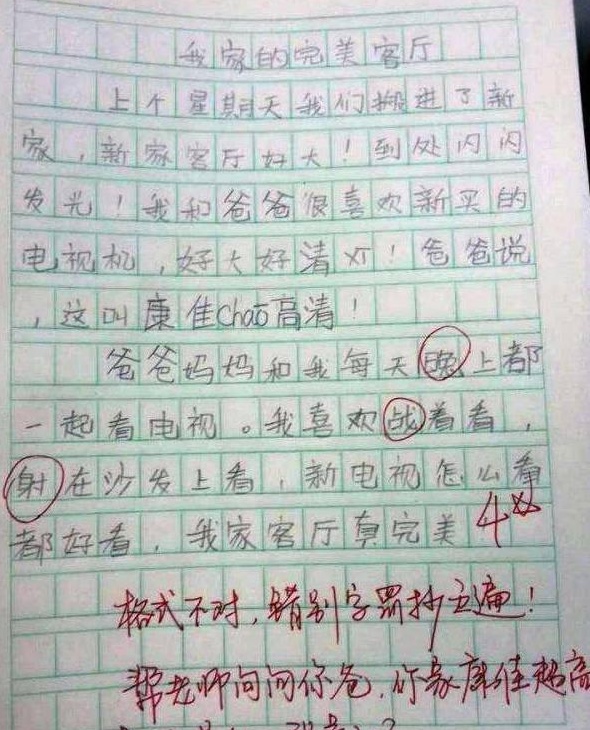 我家的完美客厅
上个星期天我们搬进了新
家，新家客厅好大！到处闪闪
发光！我和爸爸很喜欢新买的
电视机，好大好清！爸爸说
，这叫康佳chāo高清！
爸爸妈妈和我每天晚上都
一起看电视。我喜欢战着看，
射在沙发上看，新电视怎么看
都好看，我家客厅真完美
格式不对，错别字罚抄五遍！
帮老师问问你爸，你家康佳超高